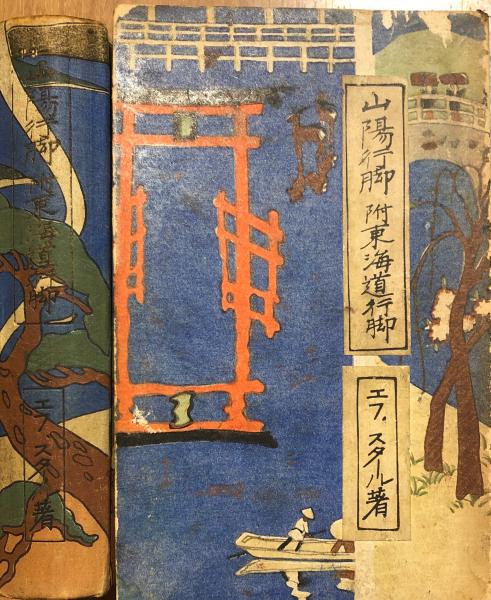 山陽行脚 附東海道行脚
エフ、スタール著
山陽行脚 附東海道行脚
エフ、スタール著